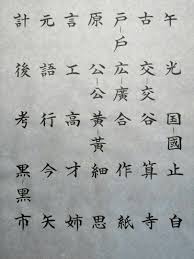 計 元 言 原 戸-戶 古 午
後 語 工 公-公 広-廣 交-交 光
考 行 高 黄-黃 合 谷 国-國
黒-黑 今 才 細 作 算 止
市 矢 姉 思 紙 寺 自